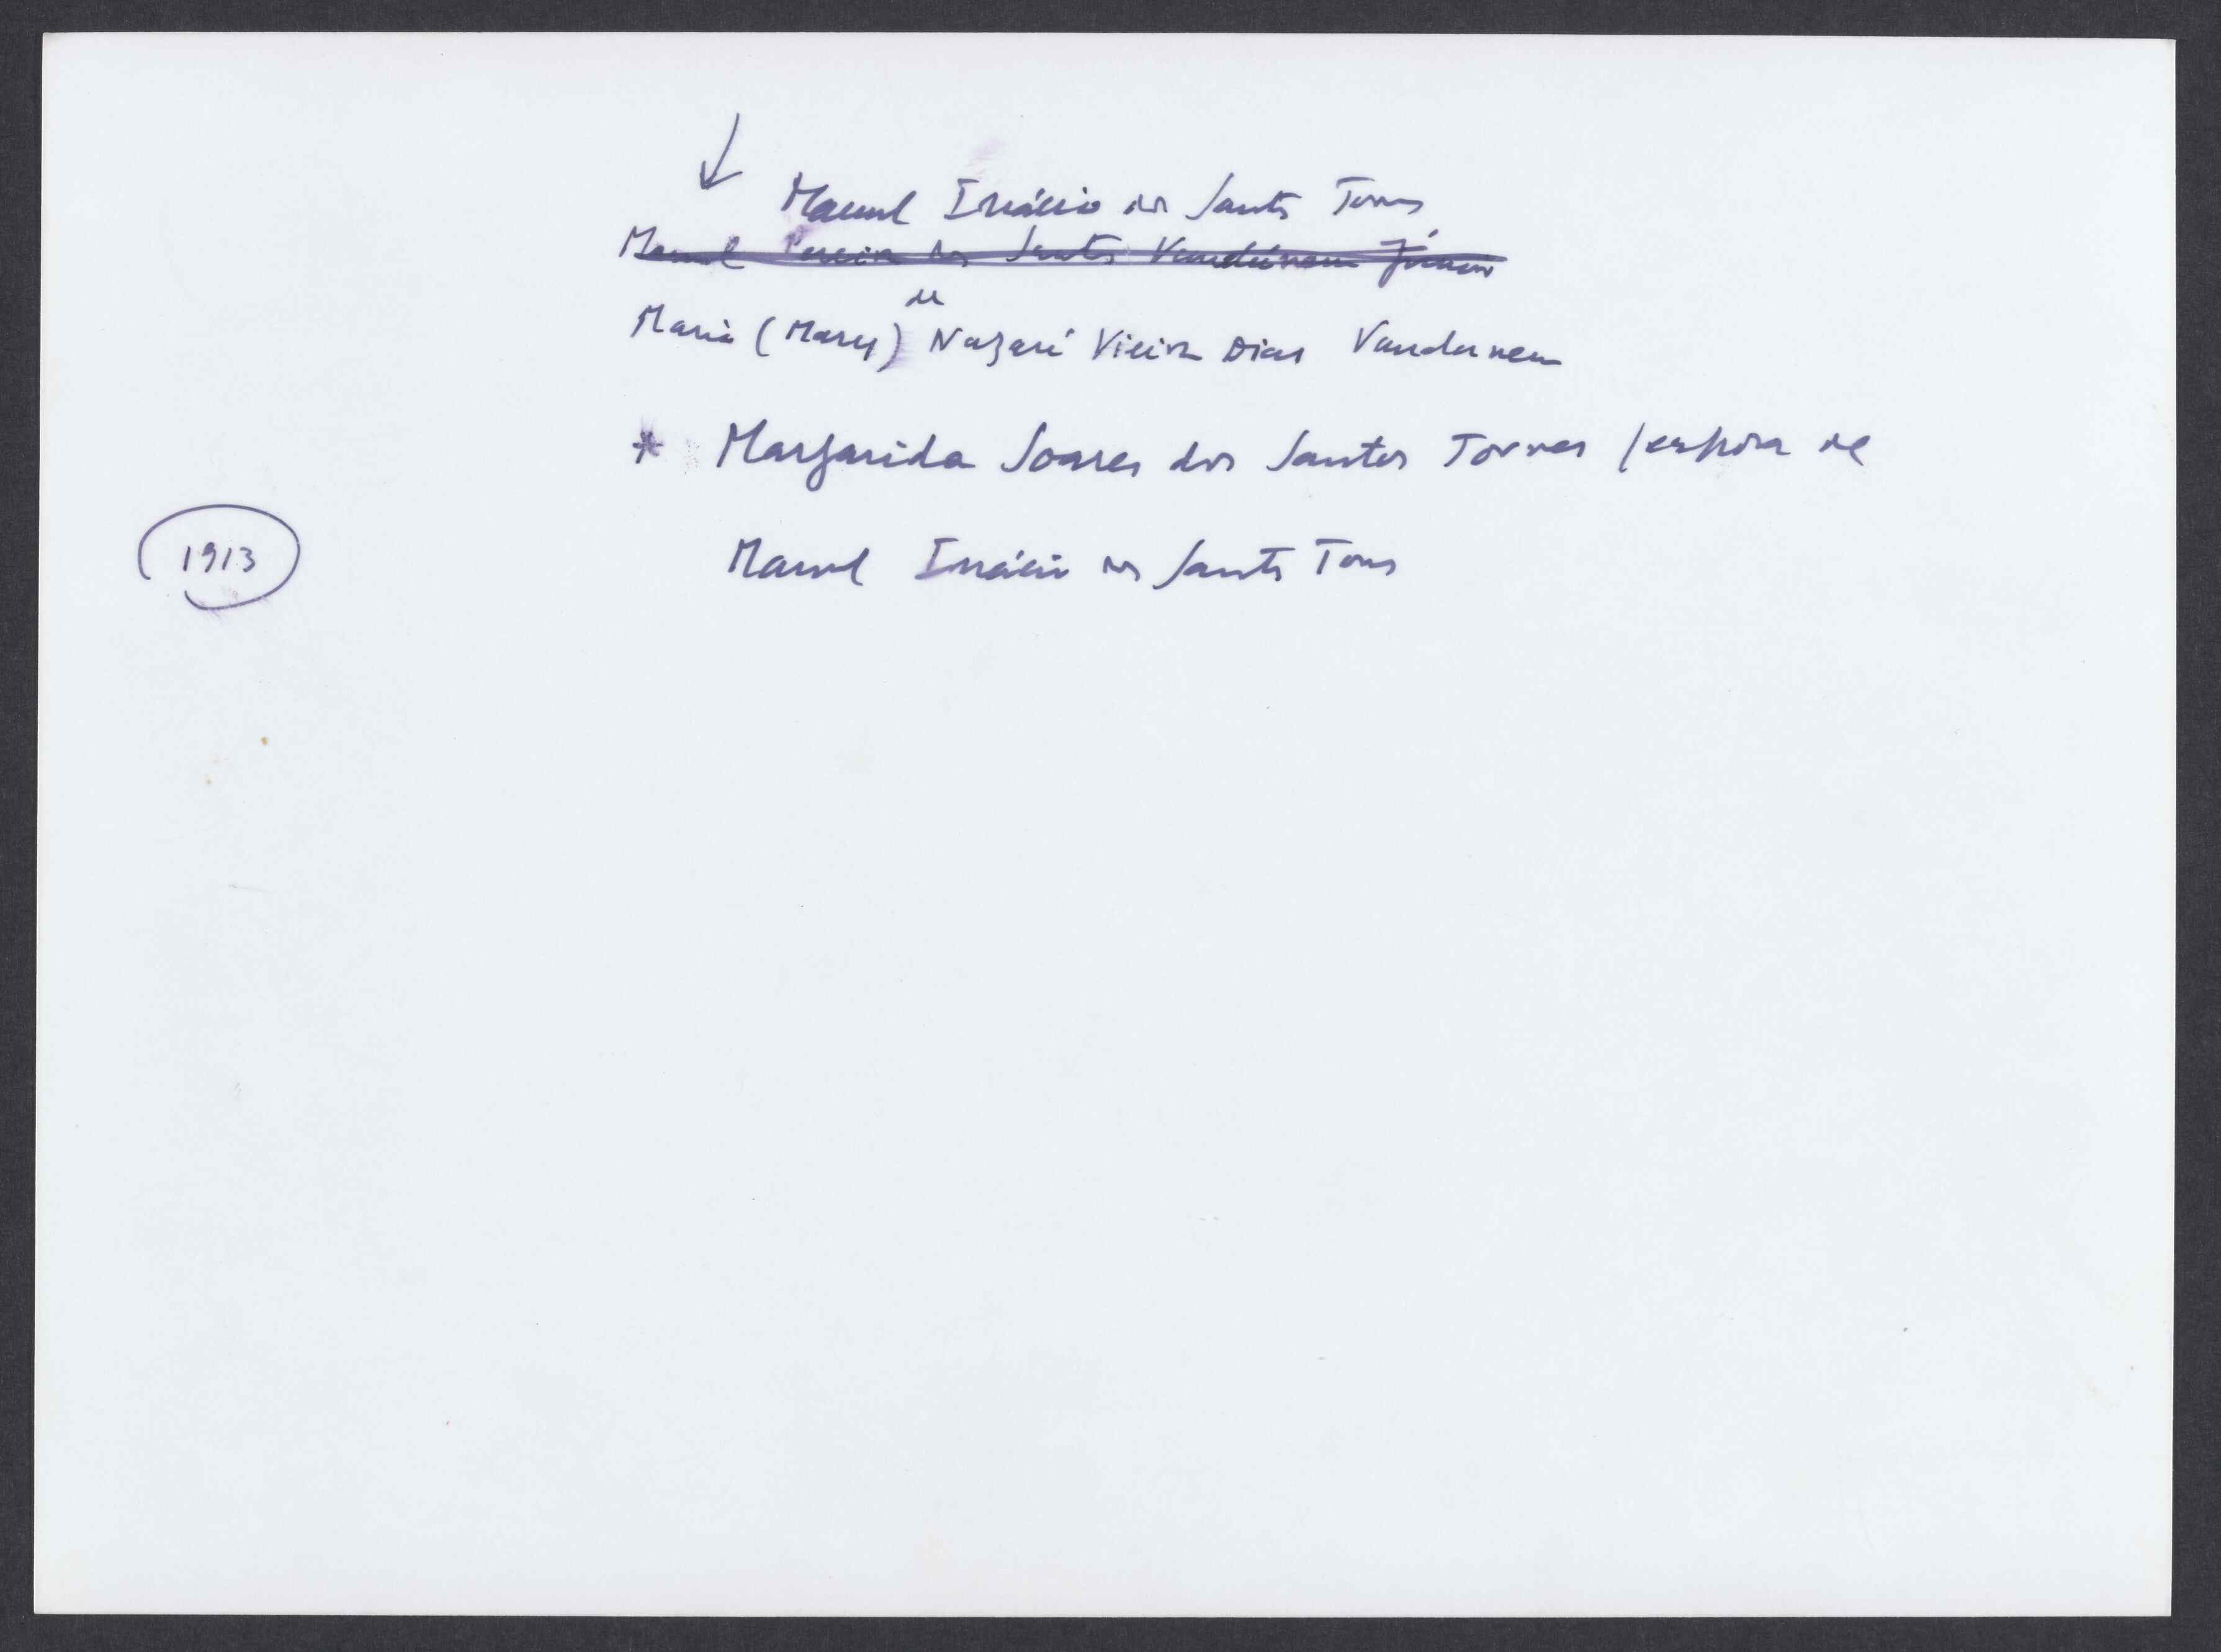 Manuel Inácio dos Santos Torres
Manuel Pereira dos Santos Vandúnem Júnior
de
Maria (Mary) Nazaré Vieira Dias Vandunem
* Margarida Soares dos Santos Torres / esposa de
1913
Manuel Inácio dos Santos Torres